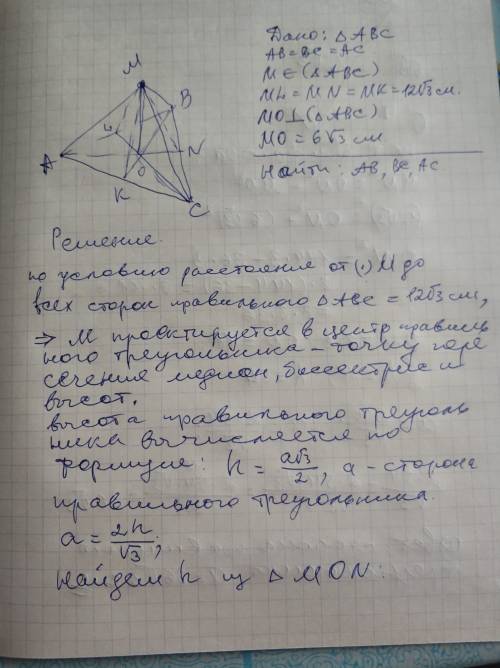 Дано: △ABC
AB = BC = AC
M ∈ (△ABC)
ML = MN = MK = 12√3 см.
MO ⊥ (△ABC)
MO = 6√3 см
Найти: AB, BC, AC
M
B
L
A
N
O
K
C
Решение.
по условию расстояние от (·) M до
всех сторон правильного △ABC = 12√3 см,
⇒ M проектируется в центр правиль
ного треугольника – точку пере
сечения медиан, биссектрис и
высот.
высота правильного треуголь
ника вычисляется по
формуле: h = a√3/2, a – сторона
правильного треугольника.
a = 2h/√3;
Найдем h из △MON: